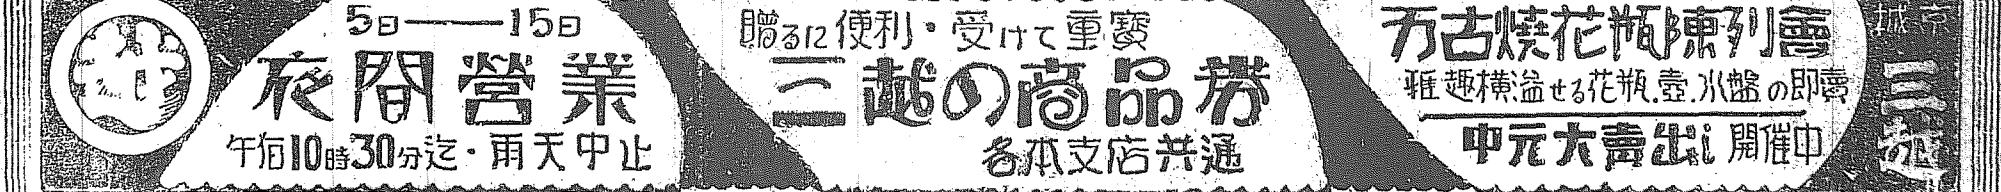 5日——15日
夜間營業
午后10時30分迄・雨天中止
贈るに便利・受けて重寶
三越の商品券
各本支店共通
万古燒花瓶陳列會
雅趣横溢せる花瓶.壺.水盤の即賣
中元大賣出し 開催中
京城
三越